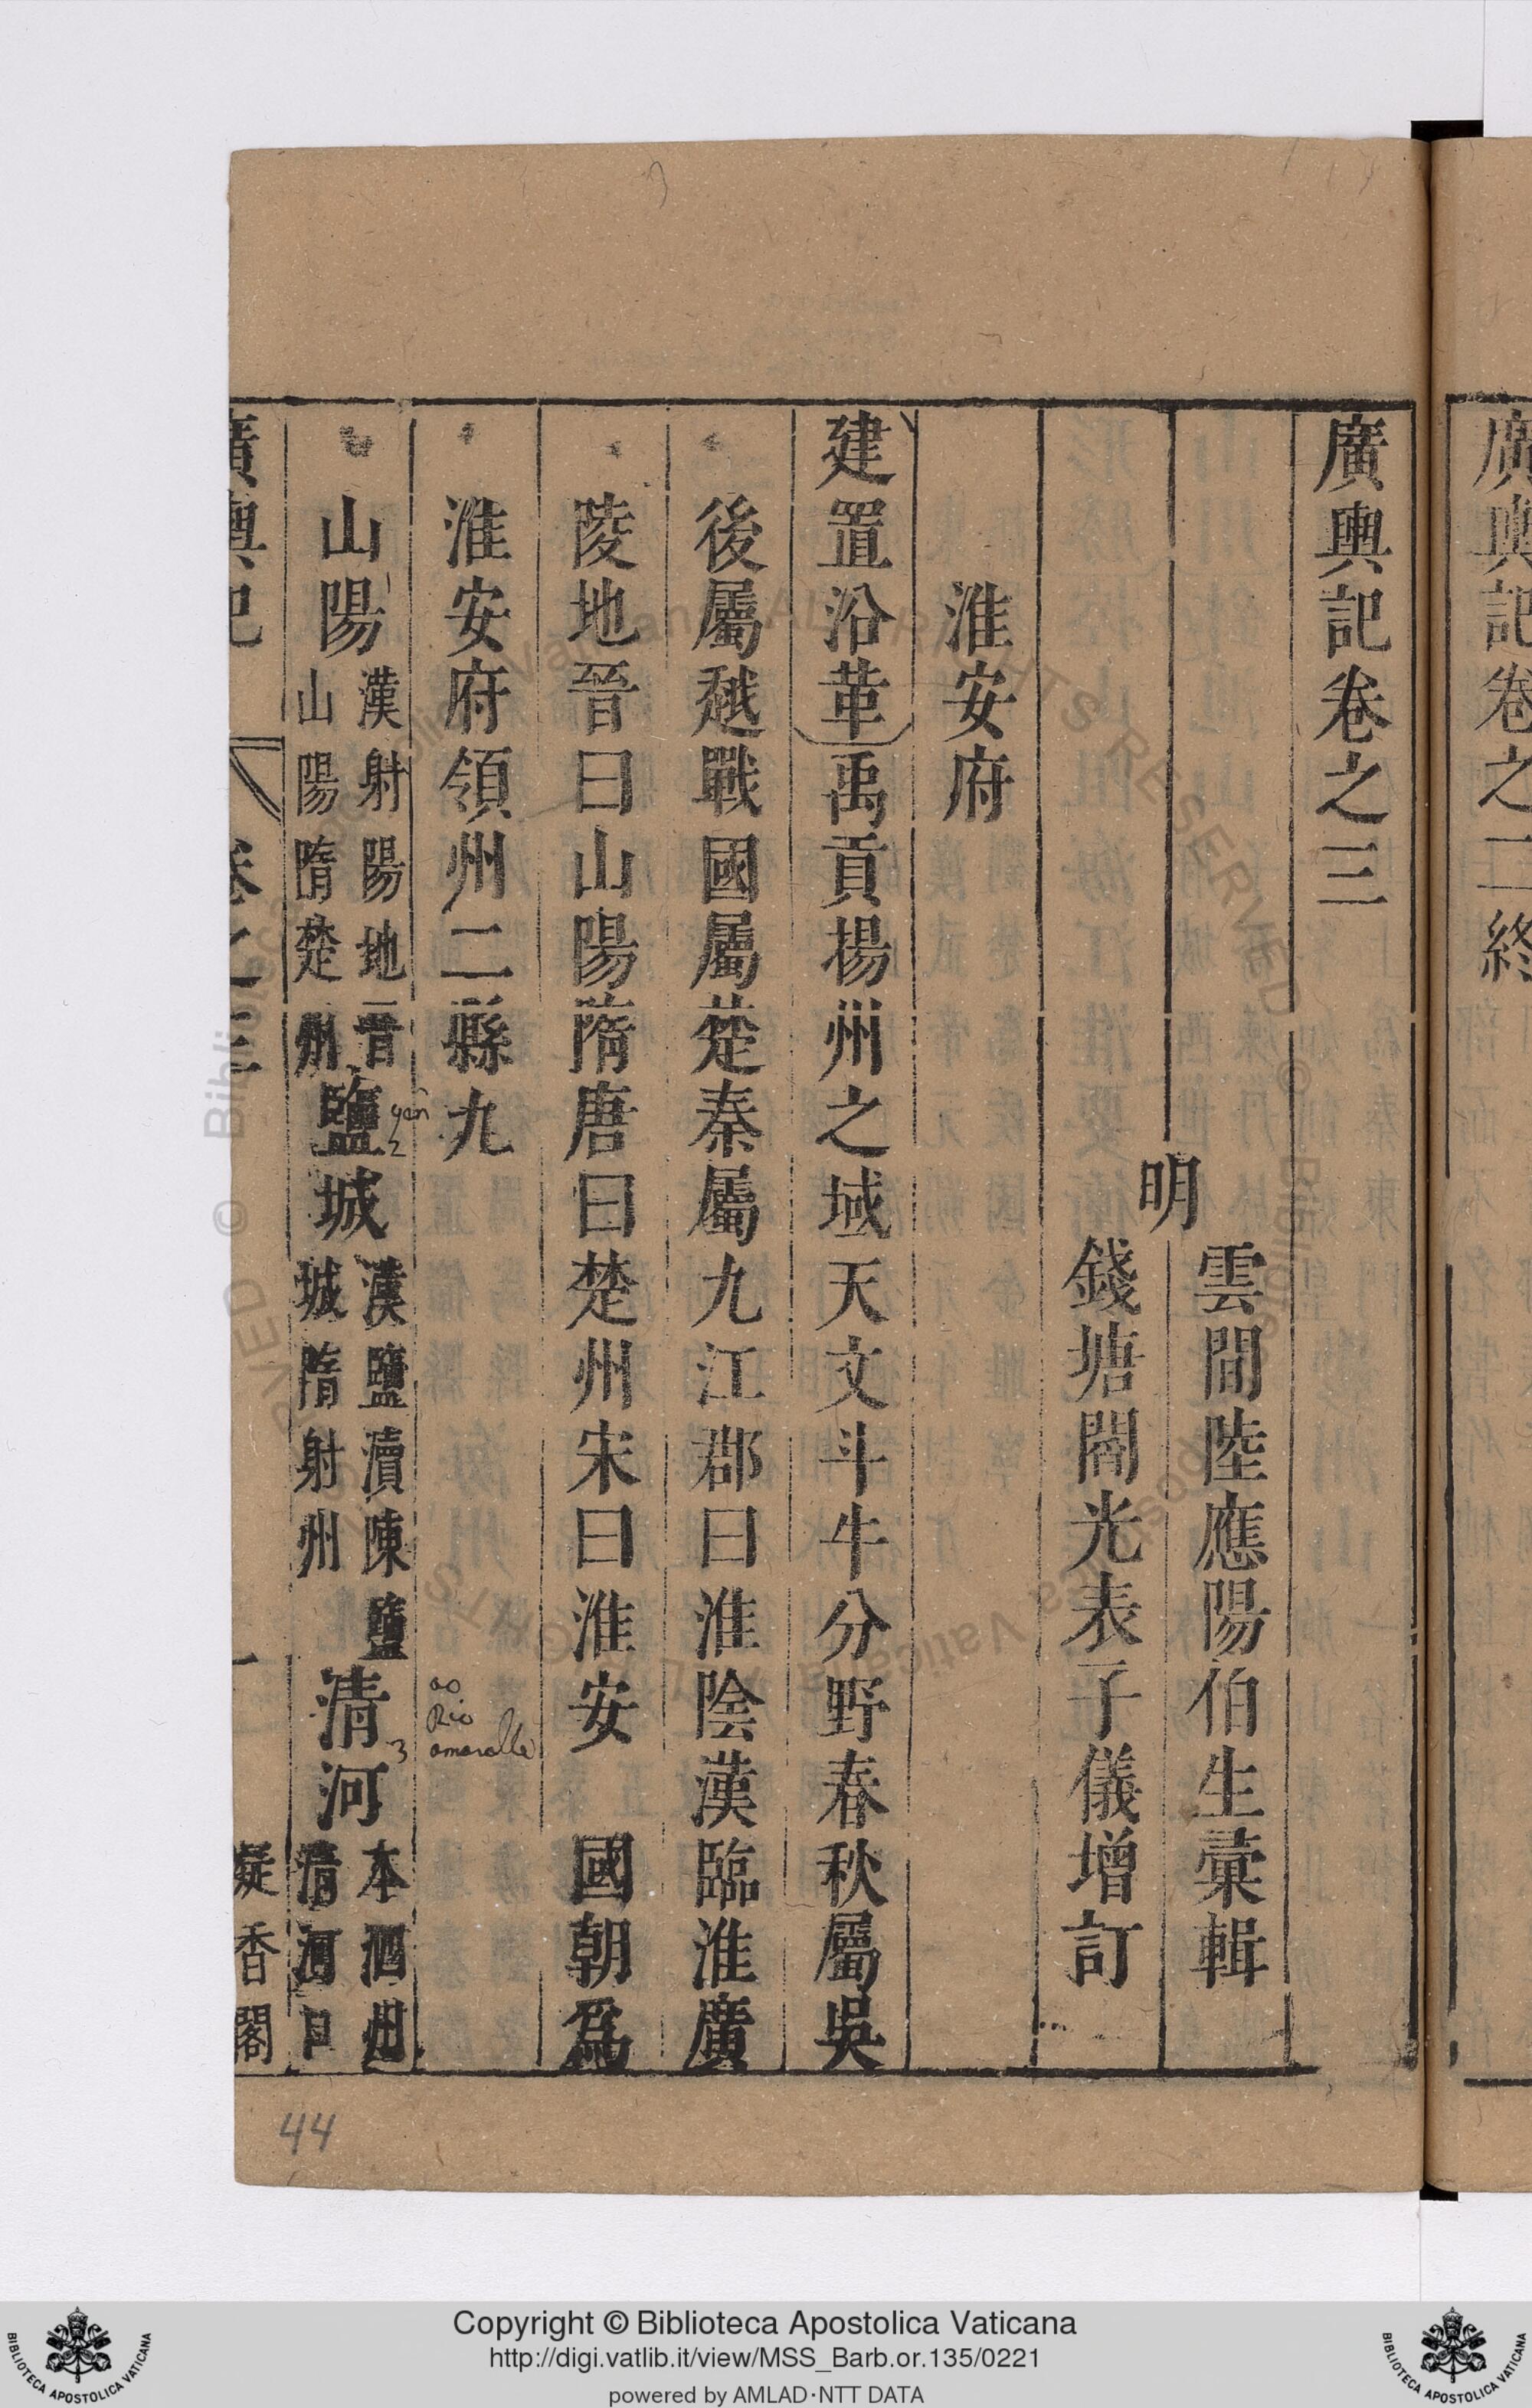 廣輿記卷之二終
廣輿記卷之三
雲間陸應陽伯生彙輯
明
錢塘閻光表子儀增訂
淮安府
建置沿革禹貢揚州之域天文斗牛分野春秋屬吳
後屬越戰國屬楚秦屬九江郡曰淮陰漢臨淮廣
陵地晉曰山陽隋唐曰楚州宋曰淮安 國朝爲
淮安府領州二縣九
山陽
漢射陽地晉
山陽隋楚州
鹽城
漢鹽瀆陳鹽
城隋射州
清河
本泗州
清河口
yań
2
3
ao
Rio
amarallo
廣輿記 卷之三 一 凝香閣
44
© Biblioteca Apostolica Vaticana ALL RIGHTS RESERVED
Copyright © Biblioteca Apostolica Vaticana
http://digi.vatlib.it/view/MSS_Barb.or.135/0221
powered by AMLAD·NTT DATA
BIBLIOTECA APOSTOLICA VATICANA
BIBLIOTECA APOSTOLICA VATICANA